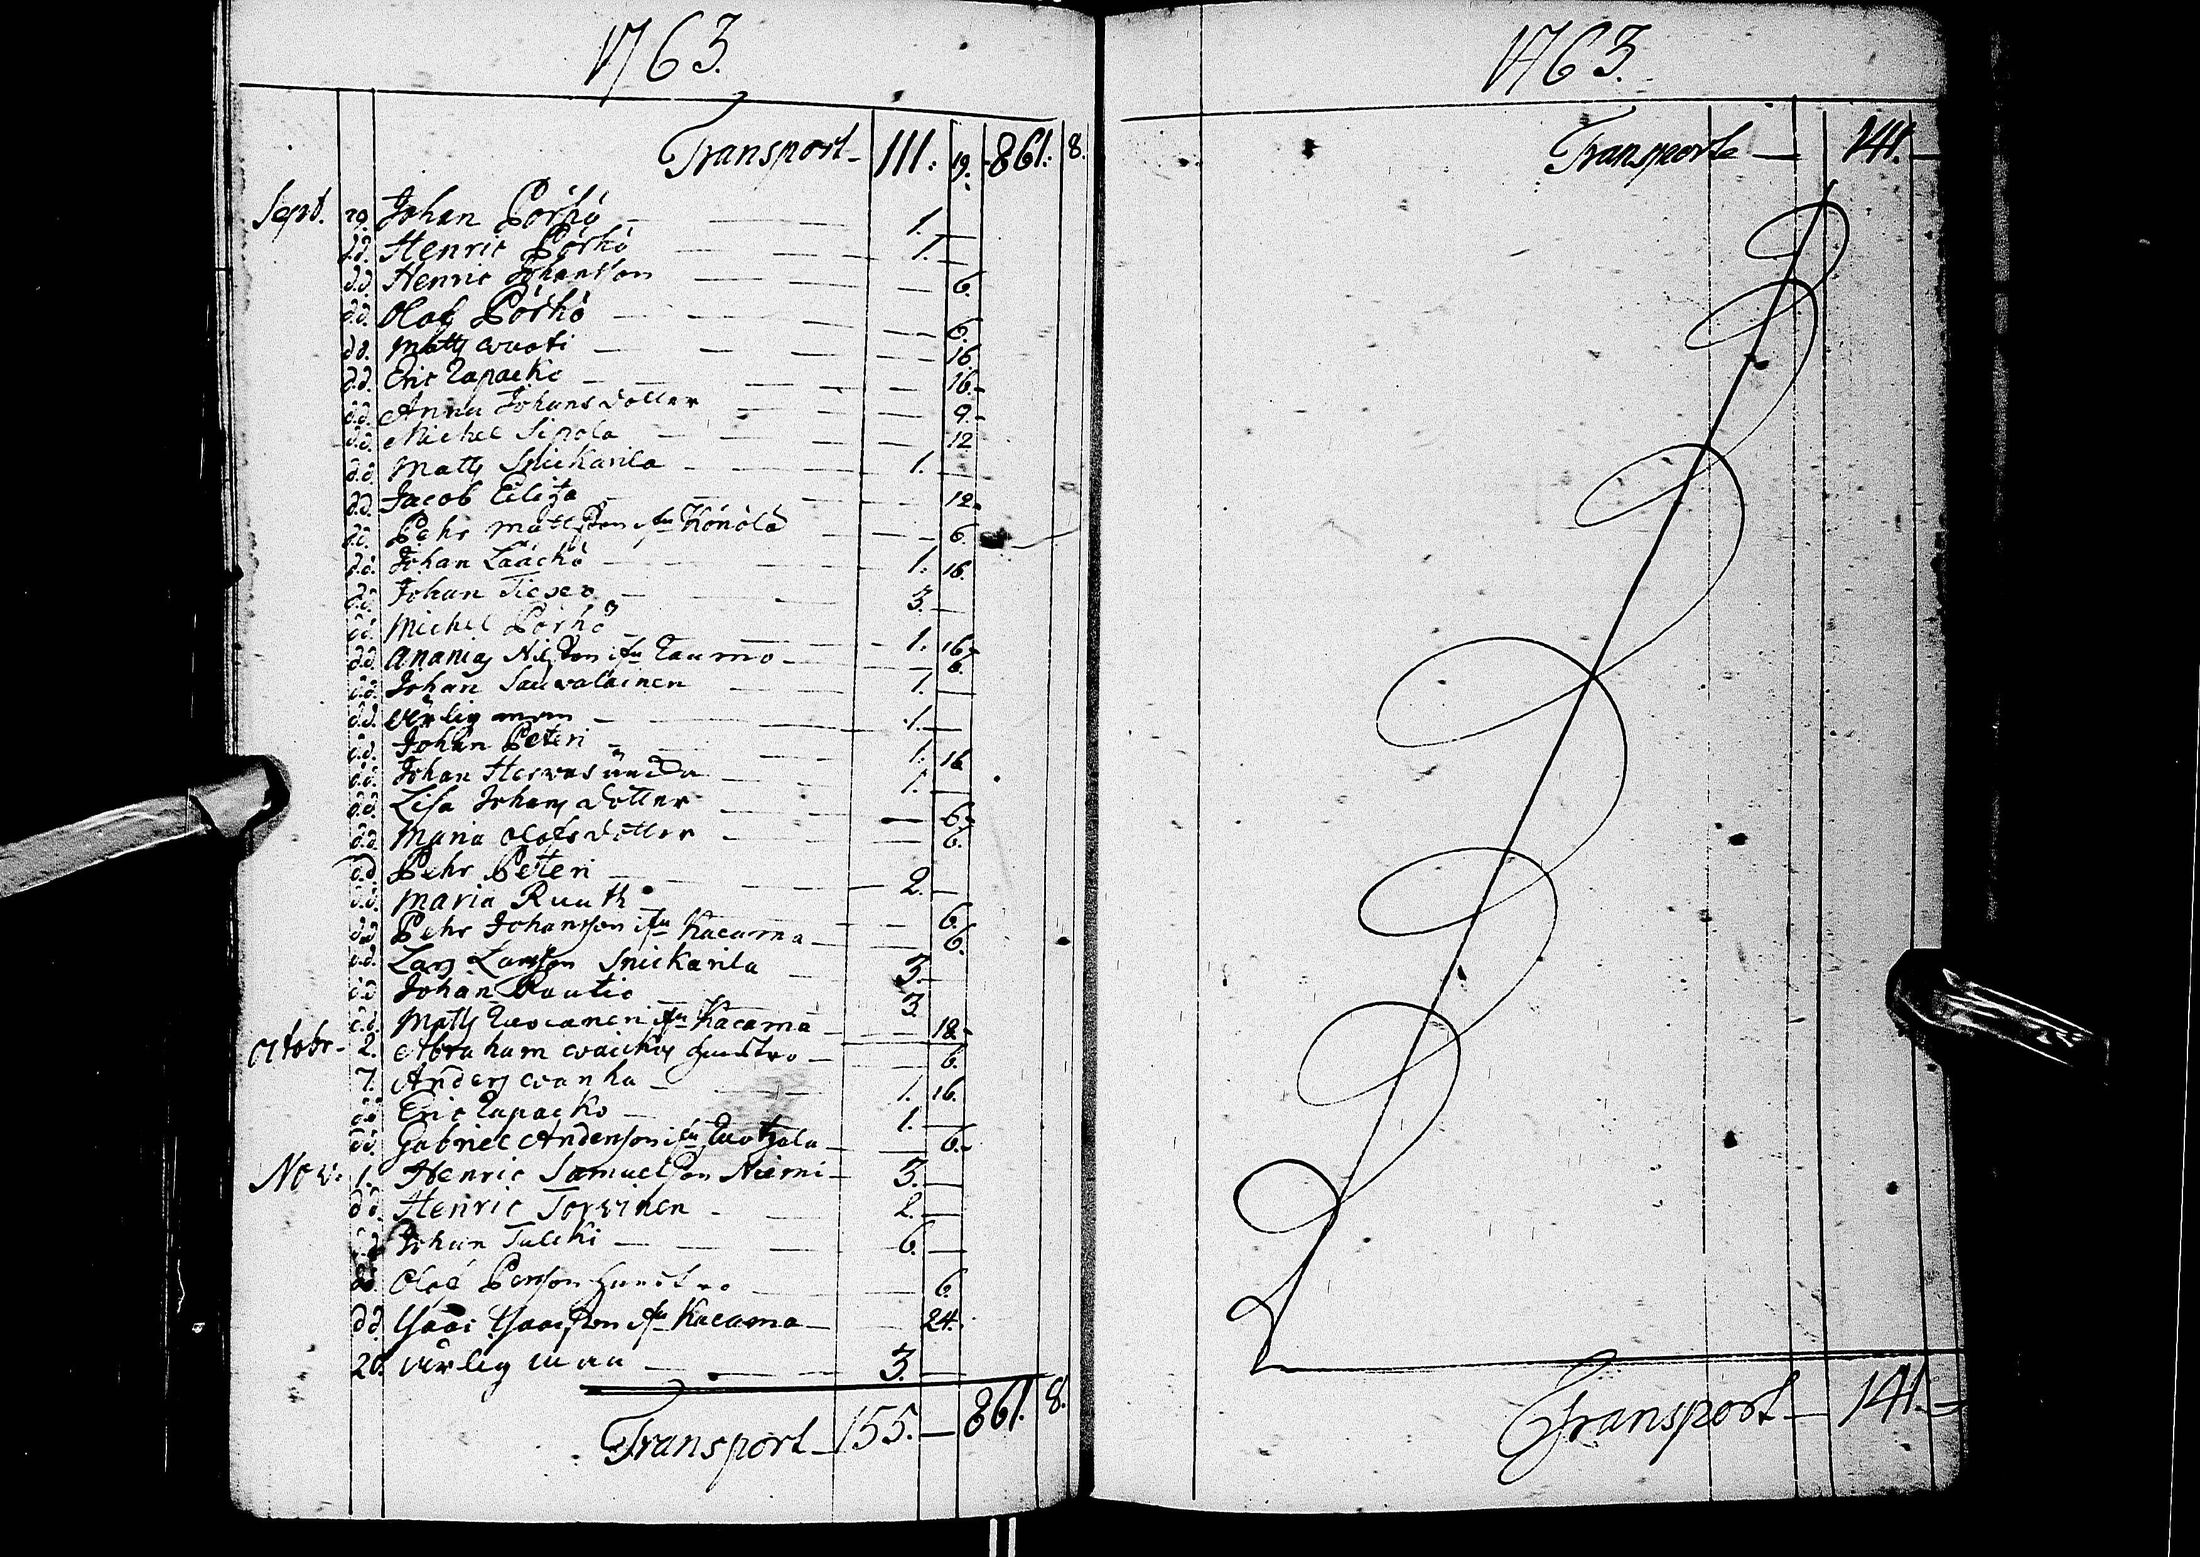 1763.
Transport 111. 19. 861. 8.
Sept. 29. Johan Pörhö 1.
d.d. Henric Pörhö 1.
d.d. Henric Johansson 6.
d.d. Olof Pörhö 6.
d.d. Matts wuoti 16
d.d. Eric Lapacko 16.
d.d. Anna Johans dotter 9.
d.d. Michel Sipola 12
d.d. Matts Snickarila 1.
d.d. Jacob 12.
d.d. Pehr Mattsson ifrn Könölä 6.
d.d. Johan Lääckö 1. 16.
d.d. Johan Tieper 3.
d.d. Michel Pörhö 1. 16.
d.d. Ananias Nilsson ifrn Laumo 6.
d.d. Johan Sauvalainen 1.
d.d. Ärlig man 1.
d.d. Johan Peteri 1. 16
d.d. Johan 1.
d.d. Lisa Johans dotter 6.
d.d. Maria Olofs dotter 6.
d.d. Pehr Peteri 2.
d.d. Maria Ruuth 6.
d.d. Pehr Johansson ifrn Kacama 6.
d.d. Lars Larsson Snickarila 3.
d.d. Johan Rautio 3.
d.d. Matts ifrn Kacama 18.
Octobr. 2. Abraham hustro 6.
7. Anders wanha 1. 16.
d.d. Eric Lapacko 1.
d.d. Gabriel Andersson ifrn 6.
Nov. 1. Henric Samuelsson Niemi 3.
d.d. Henric Torvinen 2.
d.d. Johan Tulcki 6.
Olof Persson hustro 6.
d.d. Isaac Isacsson ifrn Kacama 24.
20. Ärlig man 3.
Transport 155. 861. 8.
1763.
Transport 141.
Transport 141.